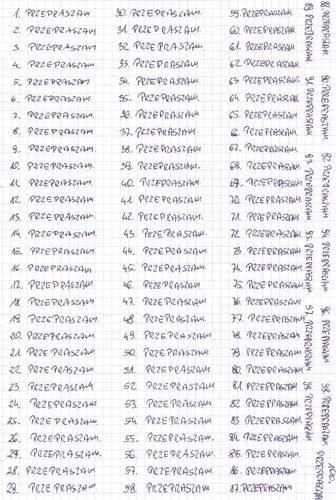 1. PRZEPRASZAM
2. PRZEPRASZAM
3. PRZEPRASZAM
4. PRZEPRASZAM
5. PRZEPRASZAM
6. PRZEPRASZAM
7. PRZEPRASZAM
8. PRZEPRASZAM
9. PRZEPRASZAM
10. PRZEPRASZAM
11. PRZEPRASZAM
12. PRZEPRASZAM
13. PRZEPRASZAM
14. PRZEPRASZAM
15. PRZEPRASZAM
16. PRZEPRASZAM
17. PRZEPRASZAM
18. PRZEPRASZAM
19. PRZEPRASZAM
20. PRZEPRASZAM
21. PRZEPRASZAM
22. PRZEPRASZAM
23. PRZEPRASZAM
24. PRZEPRASZAM
25. PRZEPRASZAM
26. PRZEPRASZAM
27. PRZEPRASZAM
28. PRZEPRASZAM
29. PRZEPRASZAM
30. PRZEPRASZAM
31. PRZEPRASZAM
32. PRZEPRASZAM
33. PRZEPRASZAM
34. PRZEPRASZAM
35. PRZEPRASZAM
36. PRZEPRASZAM
37. PRZEPRASZAM
38. PRZEPRASZAM
39. PRZEPRASZAM
40. PRZEPRASZAM
41. PRZEPRASZAM
42. PRZEPRASZAM
43. PRZEPRASZAM
44. PRZEPRASZAM
45. PRZEPRASZAM
46. PRZEPRASZAM
47. PRZEPRASZAM
48. PRZEPRASZAM
49. PRZEPRASZAM
50. PRZEPRASZAM
51. PRZEPRASZAM
52. PRZEPRASZAM
53. PRZEPRASZAM
54. PRZEPRASZAM
55. PRZEPRASZAM
56. PRZEPRASZAM
57. PRZEPRASZAM
58. PRZEPRASZAM
59. PRZEPRASZAM
60. PRZEPRASZAM
61. PRZEPRASZAM
62. PRZEPRASZAM
63. PRZEPRASZAM
64. PRZEPRASZAM
65. PRZEPRASZAM
66. PRZEPRASZAM
67. PRZEPRASZAM
68. PRZEPRASZAM
69. PRZEPRASZAM
70. PRZEPRASZAM
71. PRZEPRASZAM
72. PRZEPRASZAM
73. PRZEPRASZAM
74. PRZEPRASZAM
75. PRZEPRASZAM
76. PRZEPRASZAM
77. PRZEPRASZAM
78. PRZEPRASZAM
79. PRZEPRASZAM
80. PRZEPRASZAM
81. PRZEPRASZAM
82. PRZEPRASZAM
83. PRZEPRASZAM
84. PRZEPRASZAM
85. PRZEPRASZAM
86. PRZEPRASZAM
87. PRZEPRASZAM
88 PRZEPRASZAM
89 PRZEPRASZAM
90 PRZEPRASZAM
91 PRZEPRASZAM
92 PRZEPRASZAM
93 PRZEPRASZAM
94 PRZEPRASZAM
95 PRZEPRASZAM
96 PRZEPRASZAM
97 PRZEPRASZAM
98 PRZEPRASZAM
99 PRZEPRASZAM
100 PRZEPRASZAM